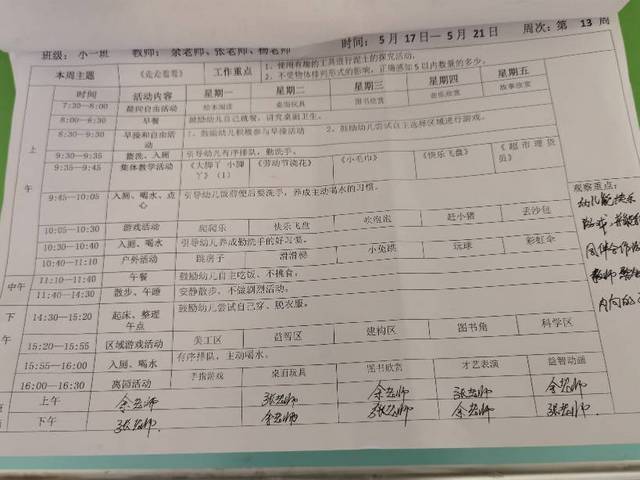 班级：小一班 教师：余老师、张老师、杨老师 时间：5月17日—5月21日 周次：第 13 周
本周主题 《走走看看》 工作重点 1、使用有趣的工具进行泥土的探究活动。
2、不受物体排列形式的影响，正确感知5以内数量的多少。
时间 活动内容 星期一 星期二 星期三 星期四 星期五
上午
7:30—8:00 晨间自由活动 绘本阅读 桌面玩具 图书欣赏 音乐欣赏 故事欣赏
8:00—8:30 早餐 鼓励幼儿自己就餐，讲究桌面卫生。
8:30—9:30 早操和自由活动 1、鼓励幼儿积极参与早操活动 2、鼓励幼儿尝试自主选择区域进行游戏。
9:30—9:35 盥洗、入厕 引导幼儿有序排队，勤洗手。
9:35—9:45 集体教学活动 《大脚丫 小脚丫》（1） 《劳动节浇花》 《小毛巾》 《快乐飞盘》 《超市理货员》
9:45—10:05 入厕、喝水、点心 引导幼儿饭前便后要洗手，养成主动喝水的习惯。
10:05—10:30 游戏活动 爬爬乐 快乐飞盘 吹泡泡 赶小猪 丢沙包
10:30—10:40 入厕、喝水 引导幼儿养成勤洗手的好习惯。
10:40—11:10 户外活动 跳房子 滑滑梯 小兔跳 玩球 彩虹伞
中午
11:10—11:40 午餐 鼓励幼儿自主吃饭、不挑食。
11:40—14:30 散步、午睡 安静散步，不做剧烈活动。
下午
14:30—15:20 起床、整理 午点 鼓励幼儿尝试自己穿、脱衣服。
15:20—15:55 区域游戏活动 美工区 益智区 建构区 图书角 科学区
15:55—16:00 入厕、喝水 有序排队，主动喝水。
16:00—16:30 离园活动 手指游戏 桌面玩具 图书欣赏 才艺表演 益智动画
上午 余老师 张老师 余老师 张老师 余老师
下午 张老师 余老师 张老师 余老师 张老师
观察重点：
幼儿能快乐
游戏，并能和
同伴合作
教师
内向的